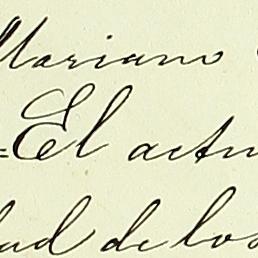 Mariano
=El actu
dad de los